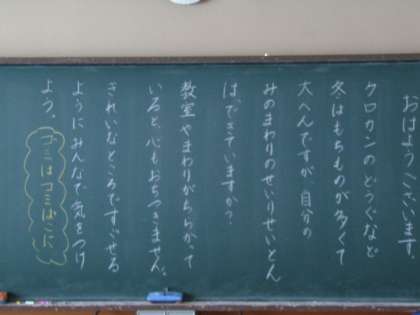 おはようございます。
クロカンのどうぐなど
冬はもちものが多くて
大へんですが、自分の
みのまわりのせいりせいとん
は、できていますか？
教室やまわりがちらかって
いると、心もおちつきません。
きれいなところですごせる
ようにみんなで気をつけ
よう。
ゴミはゴミばこに